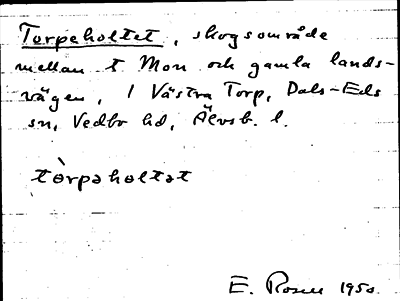 Torpeholtet, skogsområde
mellan t Mon och gamla lands-
vägen, / Västra Torp, Dals-Eds
sn, Vedbo hd, Älvsb. l.
tòrpəhəltət
E. Rosén 1950.